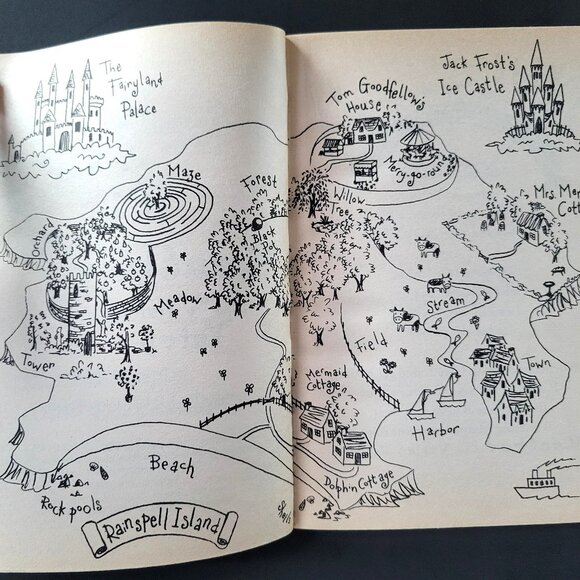 The
Fairyland
Palace
Jack Frost's
Ice Castle
Tom Goodfellow's
House
Merry-go-round
Maze
Forest
Willow
Tree
Orchard
Black
Meadow
Stream
Field
Tower
Mermaid
Cottage
Town
Harbor
Beach
Dolphin Cottage
Rock pools
Rainspell Island